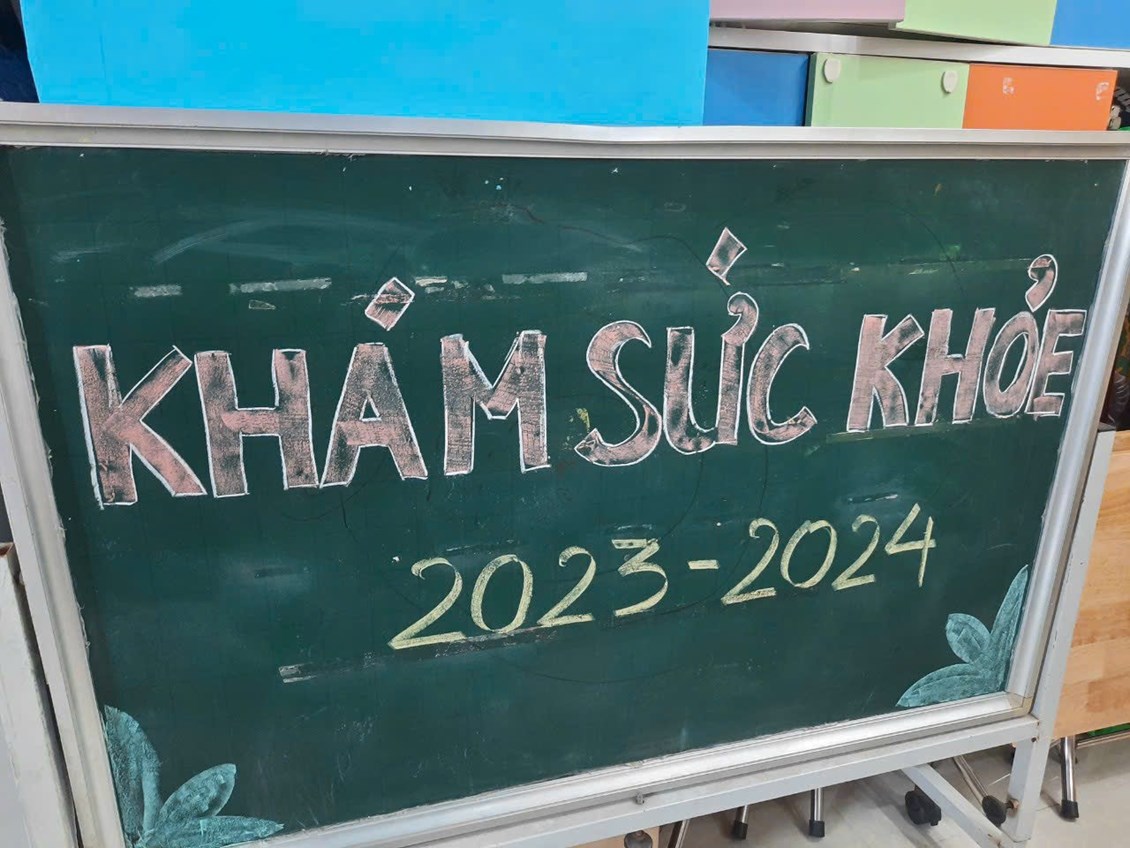 KHÁM SỨC KHỎE
2023-2024